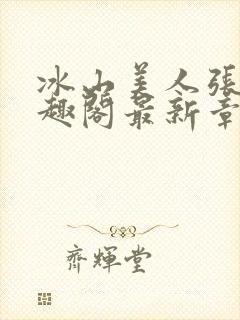 冰山美人張
趣閣最新章
齊輝堂